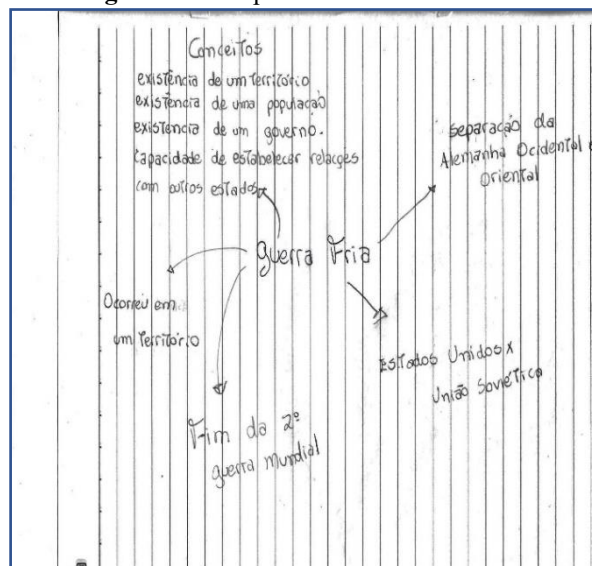 Conceitos
existência de um território
existência de uma população
existência de um governo.
Capacidade de estabelecer relações
com outros estados
separação da
Alemanha Ocidental e
Oriental
guerra Fria
Ocorreu em
um território
Estados Unidos x
União Soviética
Fim da 2º
guerra mundial